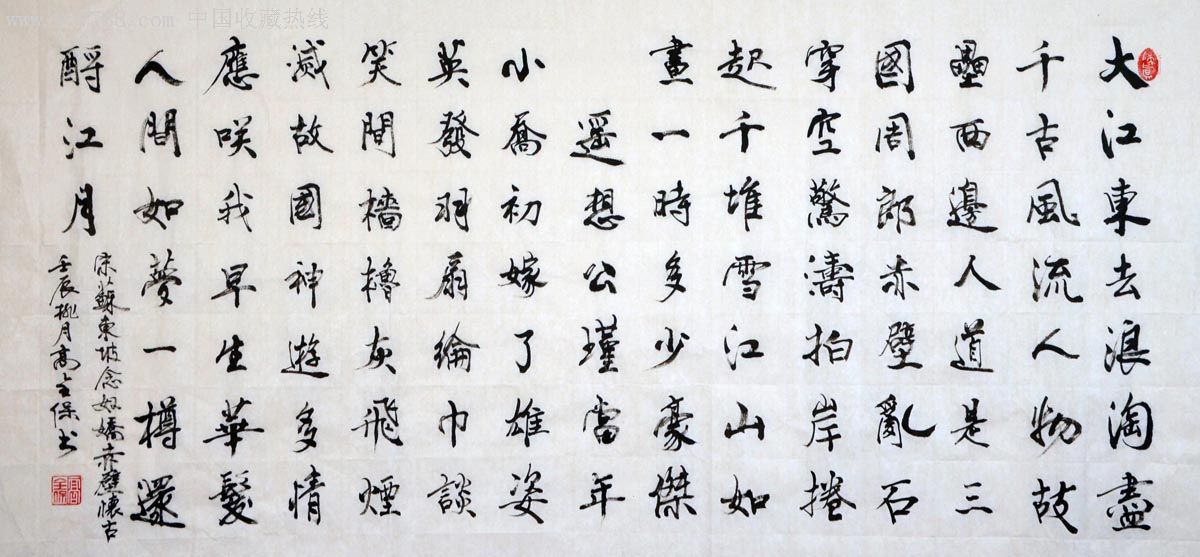 大江東去浪淘盡
千古風流人物故
壘西邊人道是三
國周郎赤壁亂石
穿空驚濤拍岸捲
起千堆雪江山如
畫一時多少豪傑
遥想公瑾當年
小喬初嫁了雄姿
英發羽扇綸巾談
笑間檣櫓灰飛煙
滅故國神遊多情
應咲我早生華髮
人間如夢一樽還
酹江月
宋蘇東坡念奴嬌赤壁懷古
壬辰桃月高金保书
中国收藏热线